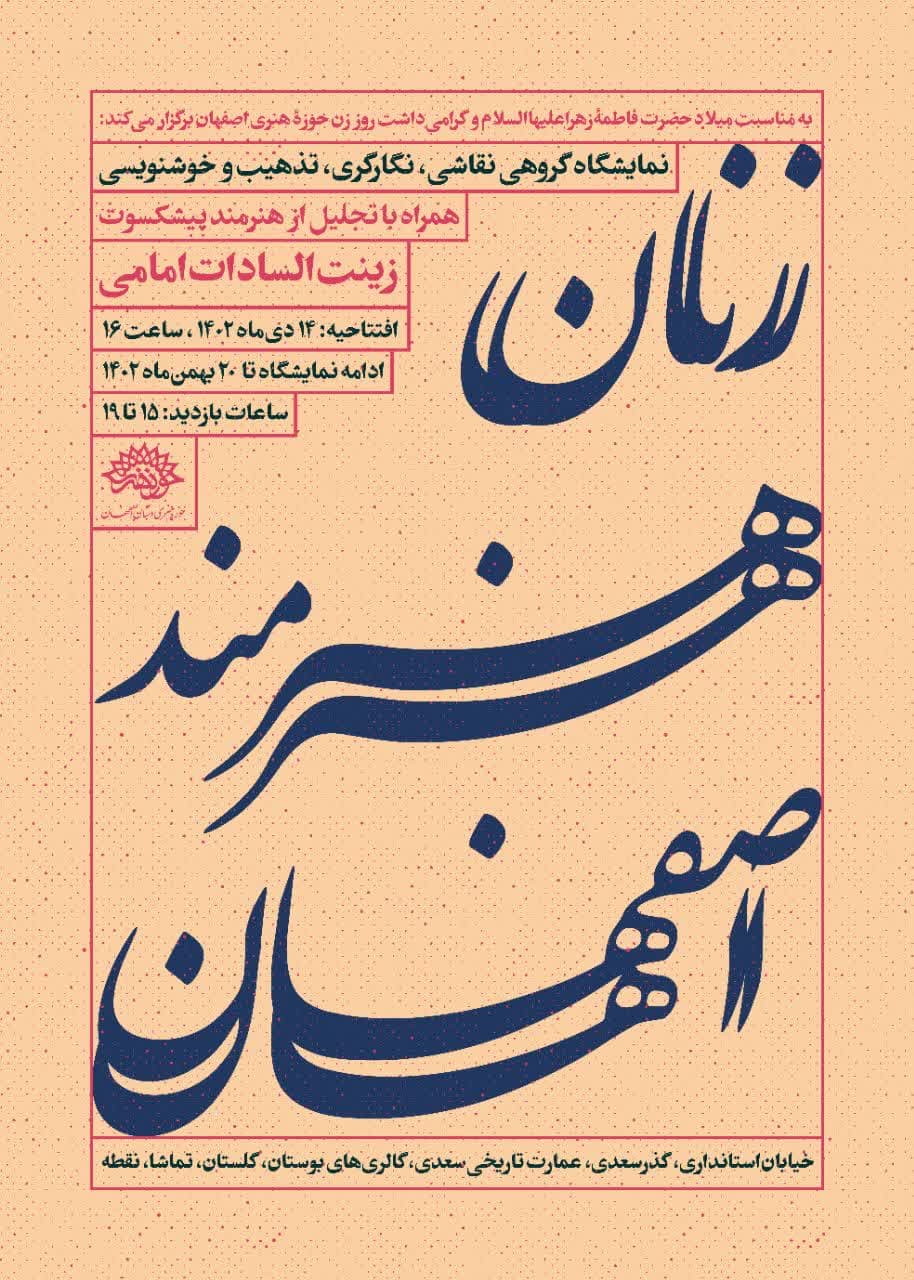 به مناسبت میلاد حضرت فاطمهٔ زهرا علیها السلام و گرامی‌داشت روز زن حوزهٔ هنری اصفهان برگزار می‌کند:
نمایشگاه گروهی نقاشی، نگارگری، تذهیب و خوشنویسی
همراه با تجلیل از هنرمند پیشکسوت
زینت السادات امامی
افتتاحیه: ۱۴ دی‌ماه ۱۴۰۲، ساعت ۱۶
ادامه نمایشگاه تا ۲۰ بهمن‌ماه ۱۴۰۲
ساعات بازدید: ۱۵ تا ۱۹
حوزه هنری استان اصفهان
زنان
هنرمند
اصفهان
خیابان استانداری، گذر سعدی، عمارت تاریخی سعدی، گالری‌های بوستان، گلستان، تماشا، نقطه